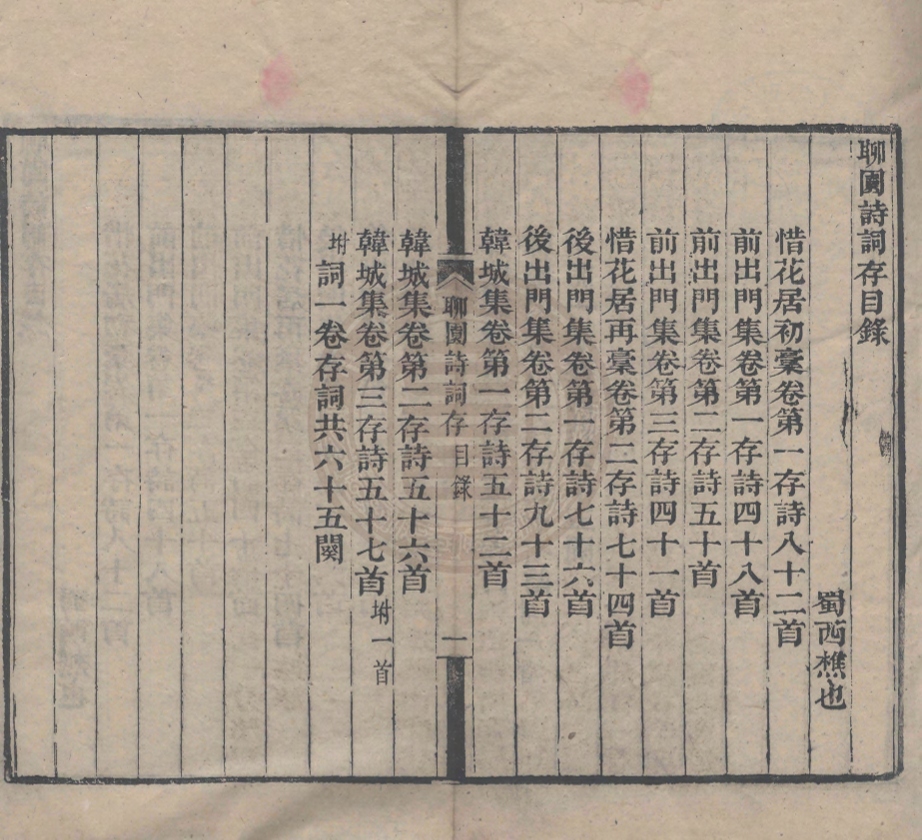 聊園詩詞存目錄
蜀西樵也
惜花居初稾卷第一存詩八十二首
前出門集卷第一存詩四十八首
前出門集卷第二存詩五十首
前出門集卷第三存詩四十一首
惜花居再稾卷第二存詩七十四首
後出門集卷第一存詩七十六首
後出門集卷第二存詩九十三首
韓城集卷第一存詩五十二首
聊園詩詞存 目錄 一
韓城集卷第二存詩五十六首
韓城集卷第三存詩五十七首坿一首
坿詞一卷存詞共六十五闋